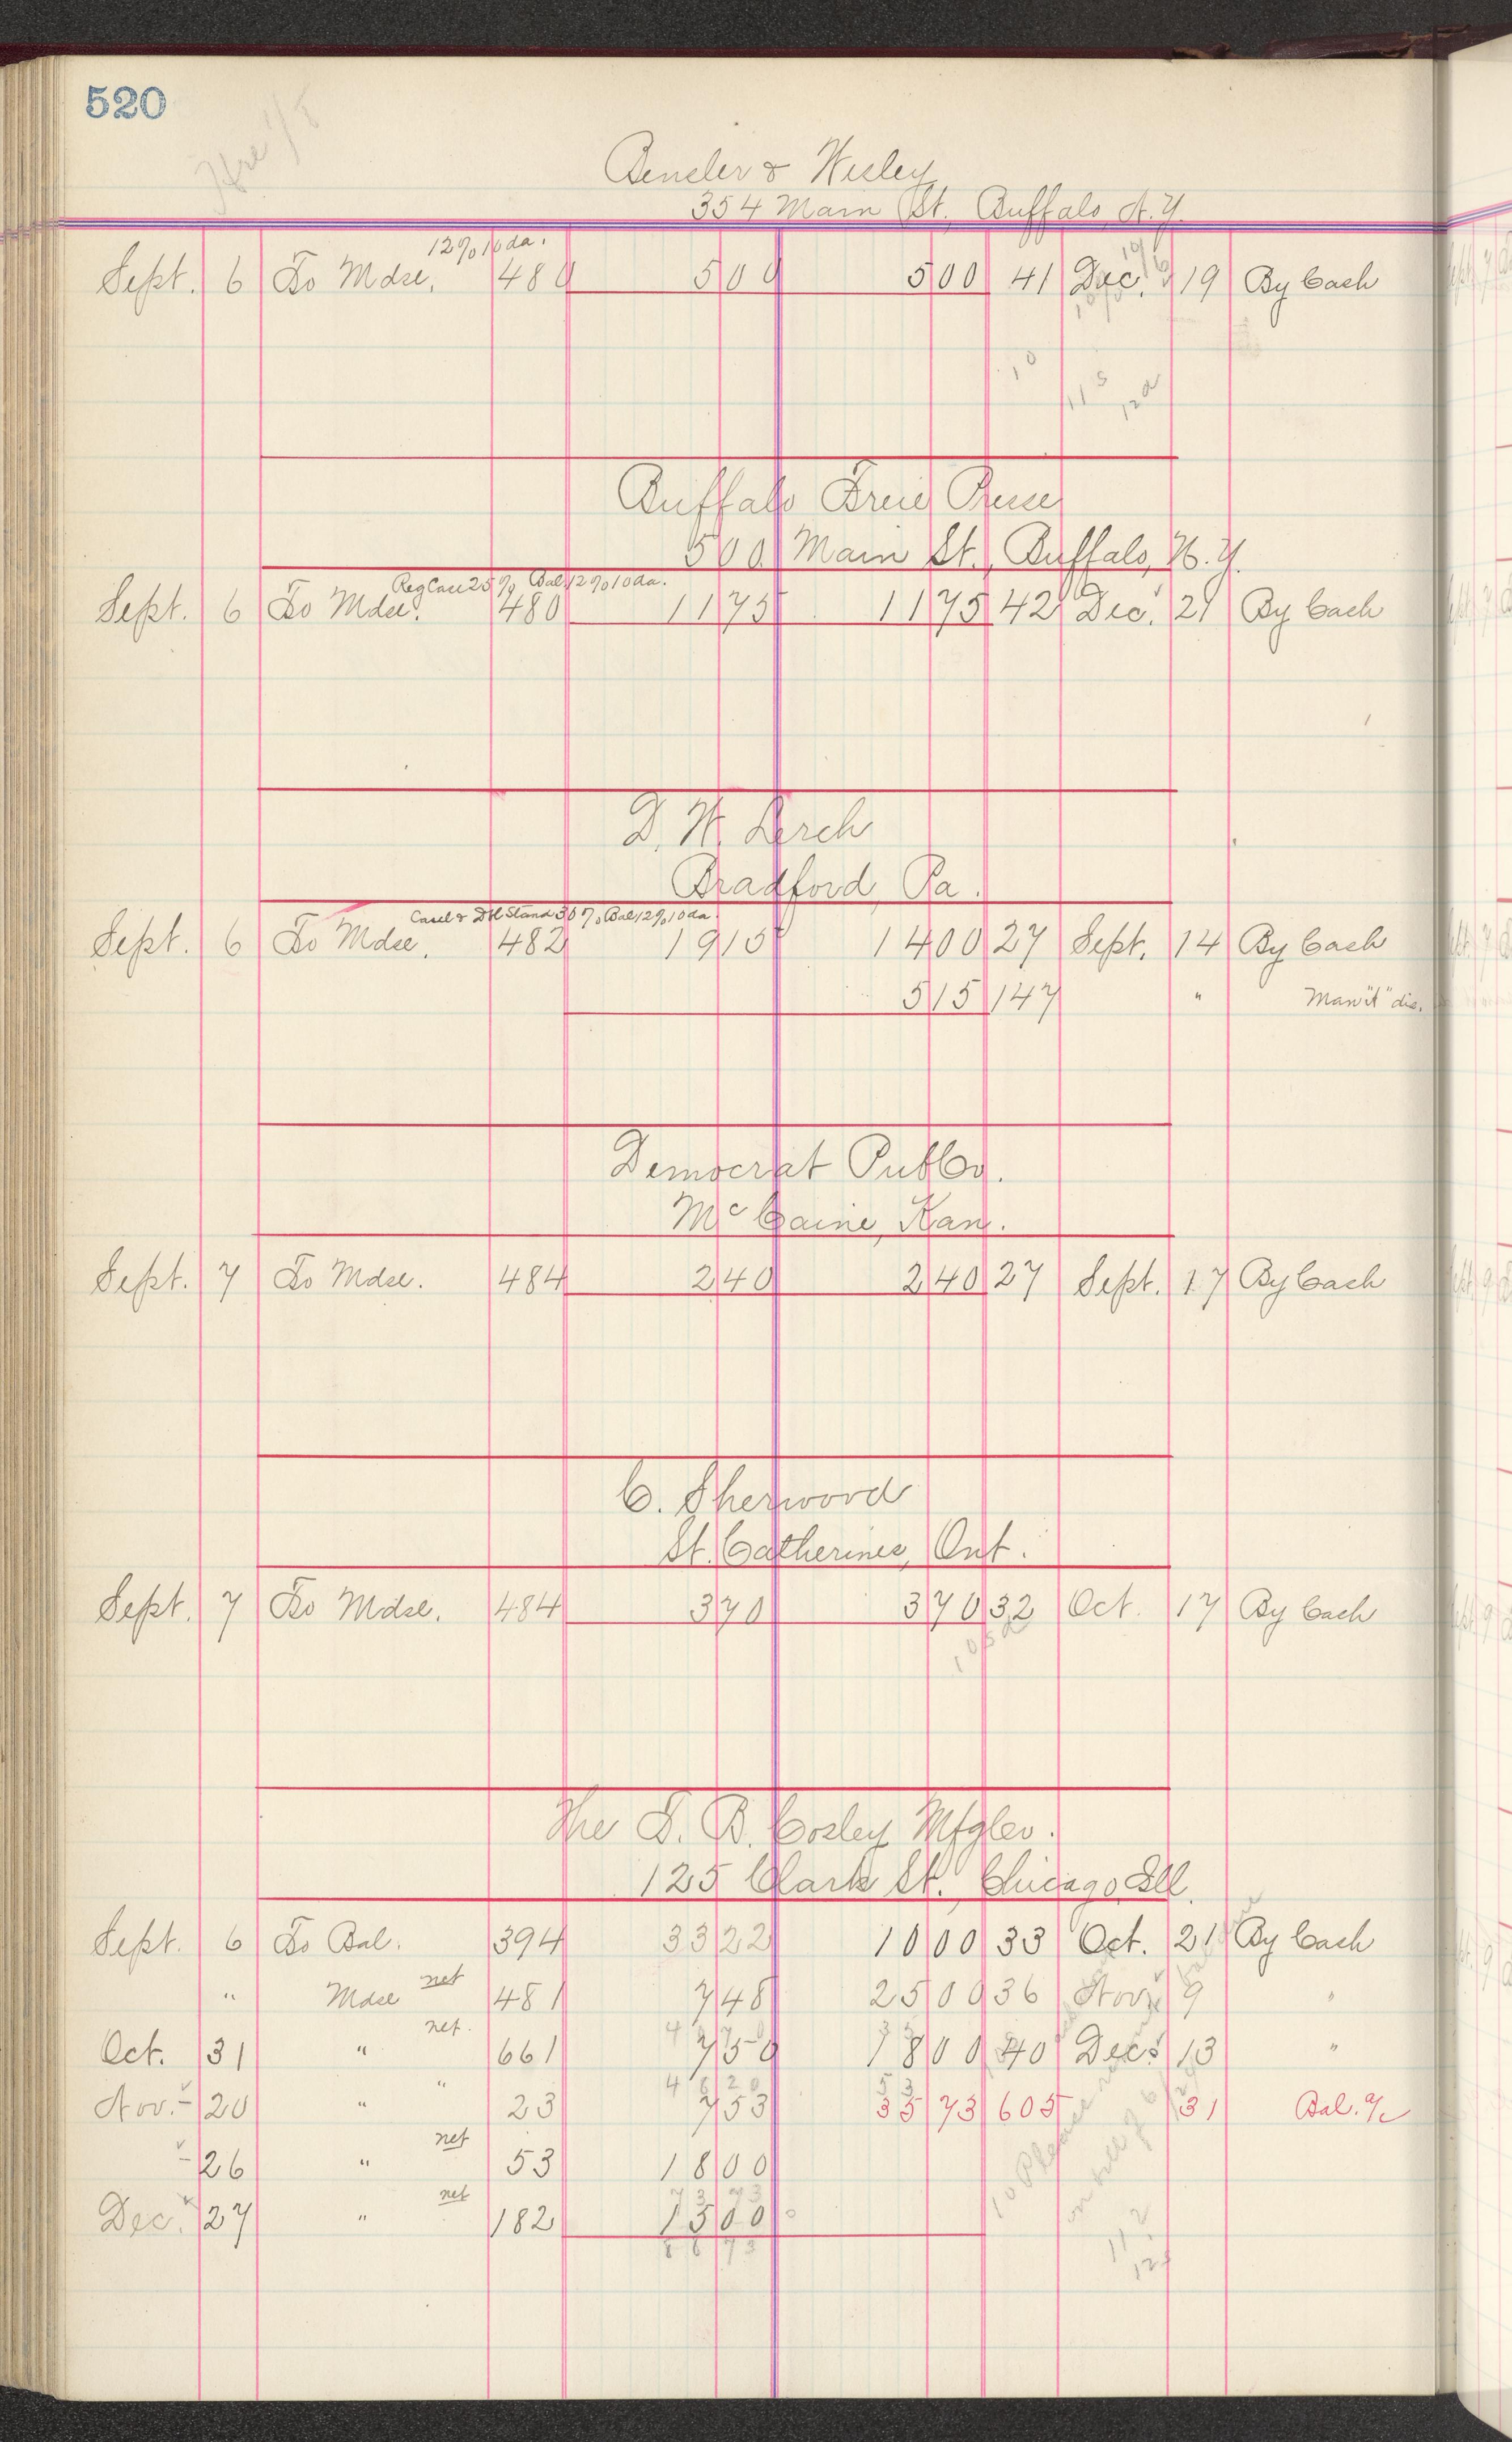 520
Bensler & Wesley
354 Main St. Buffalo, N.Y.
12% 10 da.
Sept. 6 To Mdse. 480 500 500 41 Dec. 19 By Cash
10
11 5
12
Buffalo Preie Presse
500 Main St. Buffalo, N.Y.
Reg Case 25% Bal 12% 10 da.
Sept. 6 To Mdse. 480 1175 1175 42 Dec. 21 By Cash
D. W. Lerch
Bradford, Pa.
Case & Dbl Stand 30% Bal 12% 10 da
Sept. 6 To Mdse. 482 1915 1400 27 Sept. 14 By Cash
515 147 " Man'f'" dis.
Democrat Pub Co.
McCaine, Kan.
Sept. 7 To Mdse. 484 240 240 27 Sept. 17 By Cash
C. Sherwood
St. Catherines, Ont.
Sept. 7 To Mdse. 484 370 370 32 Oct. 17 By Cash
The F. B. Cosley Mfg Co.
125 Clark St. Chicago, Ill.
Sept. 6 To Bal. 394 3322 1000 33 Oct. 21 By Cash
" Mdse net 481 748 2500 36 Nov. 9 "
Oct. 31 " net. 661 750 1800 40 Dec. 13 "
4 6 2 0 5 3
Nov. 20 " " 23 753 3573 605 31 Bal. a/c
26 " net 53 1800
7 3 7 3
Dec. 27 " net 182 1500
8 8 7 3
11 2